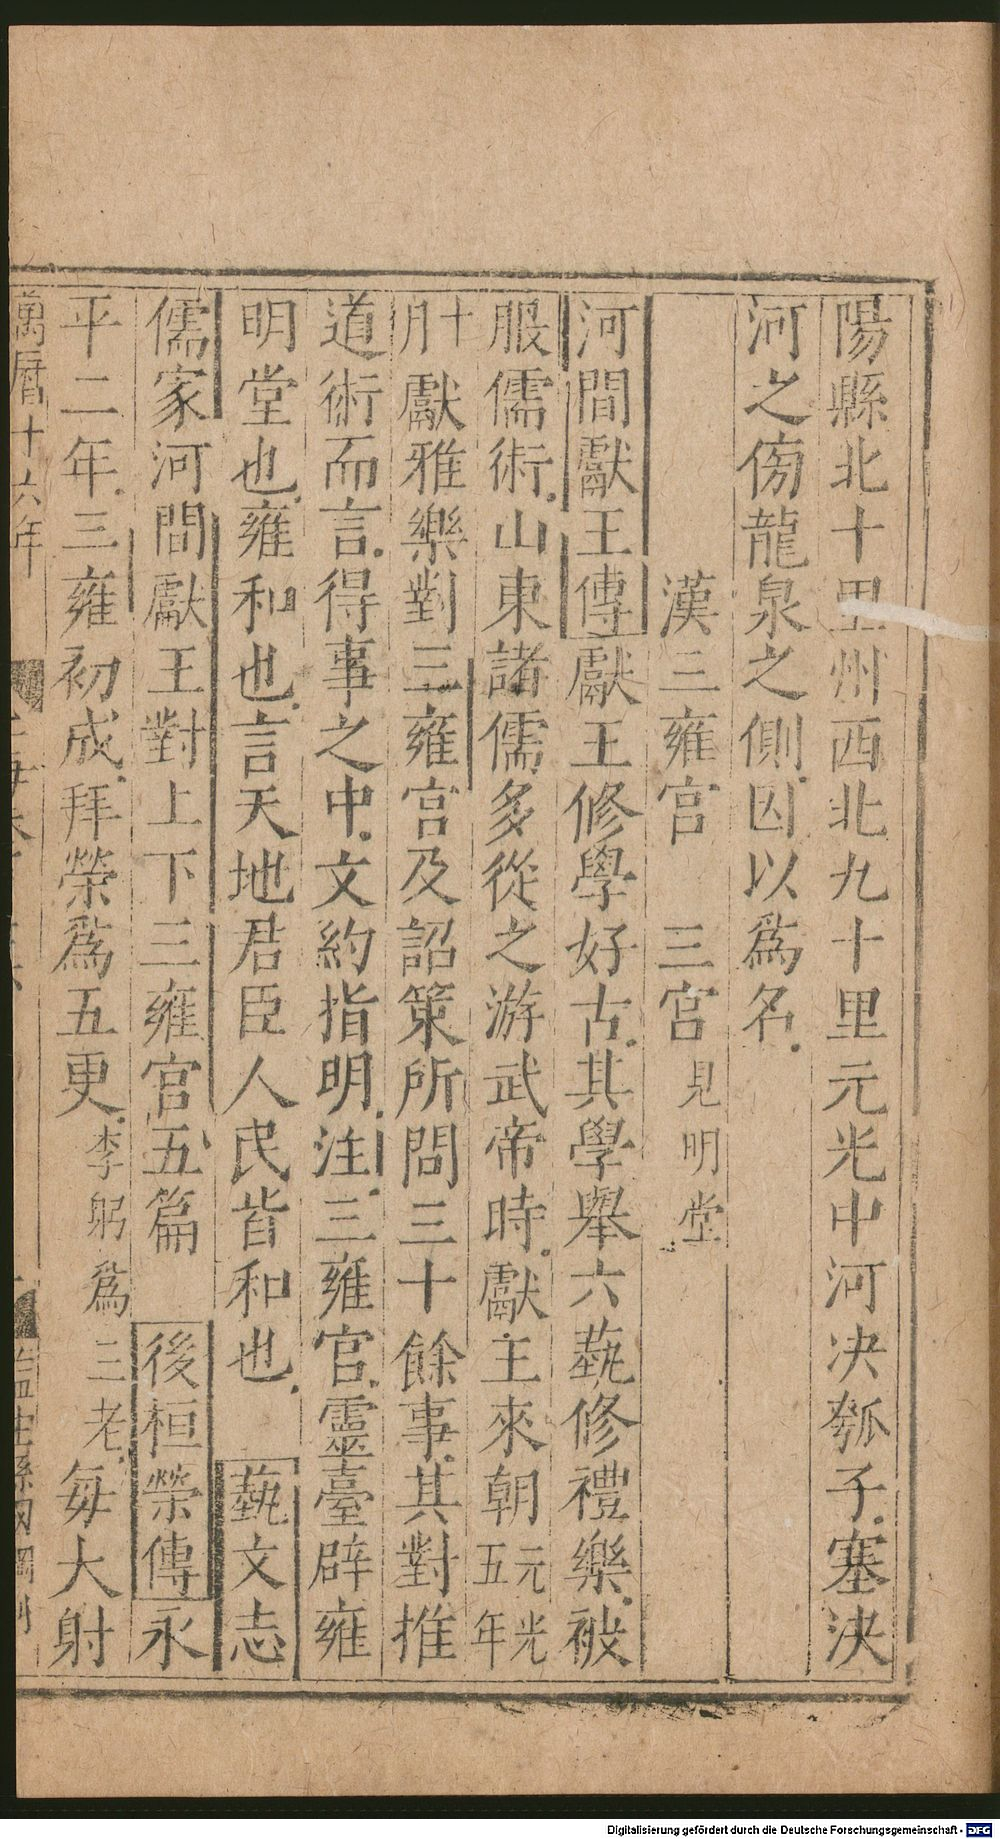 陽縣北十里州西北九十里元光中河决瓠子塞決
河之傍龍泉之側因以爲名
漢三雍宫　三宫見明堂
河間獻王傳獻王修學好古其學舉六藝修禮樂被
服儒術山東諸儒多從之游武帝時獻王來朝元光五年
十月獻雅樂對三雍宫及詔策所問三十餘事其對推
道術而言得事之中文約指明注三雍宫靈臺辟雍
明堂也雍和也言天地君臣人民皆和也　藝文志
儒家河間獻王對上下三雍宫五篇　後桓榮傳永
平二年三雍初成拜榮爲五更李躬爲三老每大射
萬曆十六年
Digitalisierung gefördert durch die Deutsche Forschungsgemeinschaft - DFG